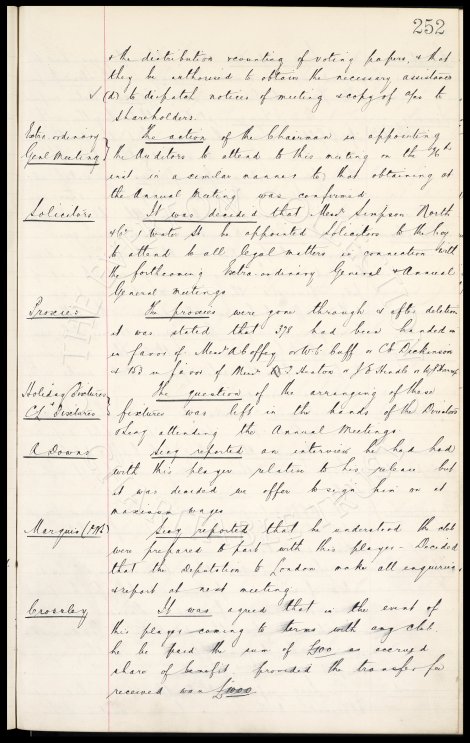 252
& the distribution & counting of voting papers, & that
they be authorised to obtain the necessary assistance
✓ (d) to dispatch notices of meeting & copy of a/cs to
shareholders.
Extra-ordinary The action of the Chairman in appointing
Genl Meeting the Auditors to attend to this meeting on the
inst in a similar manner to that obtaining at
the Annual Meeting was confirmed
Solicitors It was decided that Messrs Simpson North
& Co 1 Water St be appointed Solicitors to the Coy
to attend to all legal matters in connection with
the forthcoming Extra-ordinary General & Annual
General Meetings
Proxies The proxies were gone through & after deletion
it was stated that 378 had been handed in
in favor of Messrs A Coffey or W C Cuff or C Dickinson
& 153 in favor of Messrs Heaton or J E Heath or
Holiday Fixtures The question of the arranging of these
CL Fixtures fixtures was left in the hands of the Directors
& Secy attending the Annual Meetings
R Downs Secy reported an interview he had had
with this player relative to his release but
it was decided we offer to sign him on at
maximum wages
Marquis Secy reported that he understood the club
were prepared to part with this player - Decided
that the Deputation to London make all enquiries
& report at next meeting
Crossley It was agreed that in the event of
this player coming to terms with any club
he be paid the sum of £100 as accrued
share of benefit provided the transfer fee
received was £1000